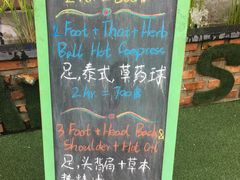 2 Foot + Thai + Herb
Ball Hot Compress
足,泰式,草药球
2 hr. = 700฿
3 Foot + Head Back &
Shoulder + Hot Oil
足,头背肩+草本